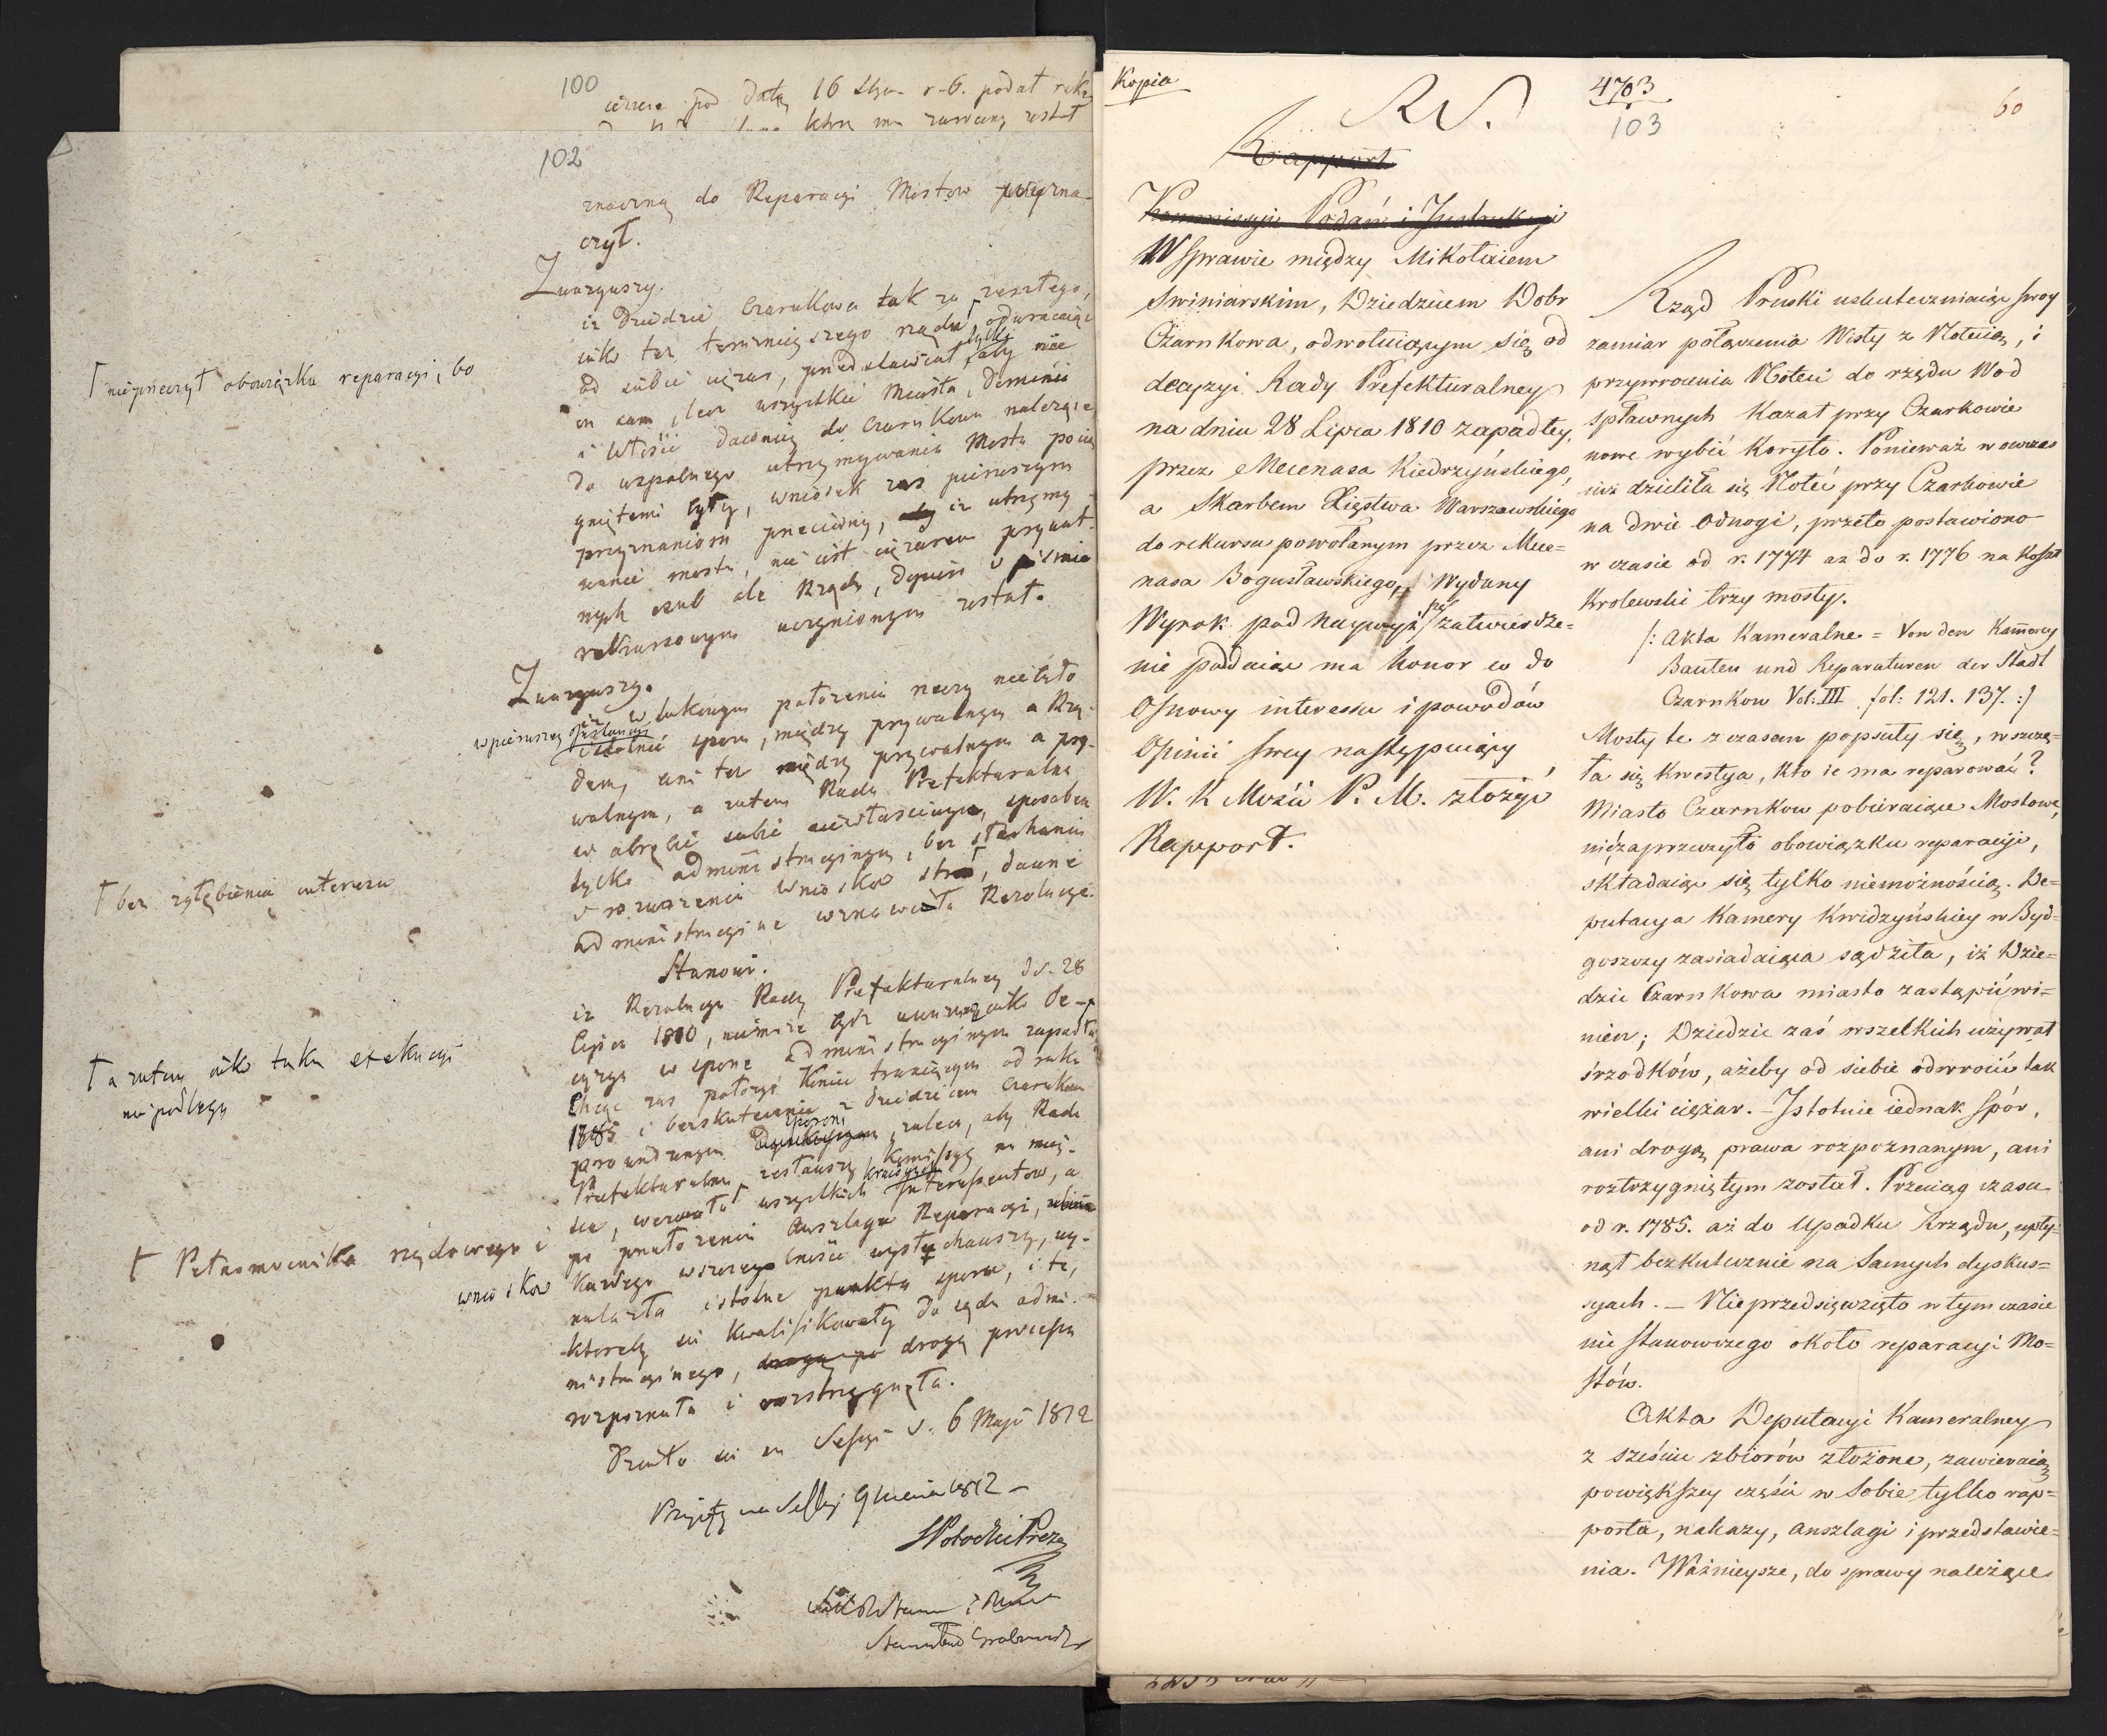 100
pod datą 16 r. b. podał
102
znaczną do Reparacyi Mostow przezna-
czył.
Zważywszy.
iż Dziedzic Czarnkowa tak za zeszłego,
iako też teraznieyszego rządu, odwracaiąc
od siebie ciężar, przedstawiał tylko aby nie
on sam, lecz wszystkie Miasta, Dominia
i Włości dawniey do Czarnkowa należące
do wspolnego utrzymywania Mostu pocią-
gniętemi były, wniosek zaś pierwszym
przyznaniom przeciwny, iż utrzymy-
wanie mostu, nie iest ciężarem prywat-
nych osub ale Rządu, dopiero w piśmie
rekursowym uczynionym został.
† nieprzeczył obowiązku reparacyi, bo
Zważywszy.
iż w takowym położeniu rzeczy nie było
w pierwszey Instancyi
istotnie sporu, między prywatnym a Rzą-
dem, ani też między prywatnym a pry-
watnym, a zatem Rada Prefekturalna
w obrębie sobie niewłaściwym, sposobem
tylko administracyinym, bez słuchania
i roztrząsania wniosków stron, dawne
administracyine wznawiała Rezolucye.
† bez zgłębienia interesu
Stanowi.
iż Rezolucya Rady Prefekturalney d. 28
Lipca 1810, nie może być uważaną iako De-
cyzya w sporze administracyinym zapadła,
Chcąc zaś położyć koniec trwaiącym od roku
1785 i bezskutecznie z Dziedzicem Czarnkowa
prowadzonym sporom, zaleca, aby Rada
Prefekturalna zesławszy Kommissyą na miey-
sce, wezwała wszystkich Interessentow, a
po przełożeniu Anszlagu Reparacyi,
każdego w szczegolności wysłuchawszy, wy-
nalazła istotne punkta sporu, i te,
ktoreby się kwalifikowały do sądu admi-
nistracyinego, drogą processu
rozpoznała i rozstrzygnęła.
† a zatem iako taka exekucyi
nie podlega
† Pełnomocnika rządowego i
wniosków
Działo się na Sessyi d. 6 Maja 1812
Przyięty na Sessyi 9 1812 –
SPotocki Prezes
Stanisław Grabowski
Kopia
4703
103
60
Rapport
Kommissyi Podań i Instrukcyi
W Sprawie między Mikołaiem
Swiniarskim, Dziedzicem Dobr
Czarnkowa, odwołuiącym się od
decyzyi Rady Prefekturalney
na dniu 28 Lipca 1810 zapadłey,
przez Mecenasa Kiedrzyńskiego,
a Skarbem Xięstwa Warszawskiego
do rekursu powołanym przez Mece=
nasa Bogusławskiego, Wydany
Wyrok pod Naywyższe zatwierdze=
nie poddaiąc ma honor co do
Osnowy interessu i powodów
Opinii swey następuiący
W. K Mości P. M. złożyć
Rapport.
Rząd Pruski uskuteczniaiąc swoy
zamiar połączenia Wisły z Notecią, i
przywrocenia Noteci do rzędu Wod
spławnych kazał przy Czarkowie
nowe wybić koryto. Ponieważ wowczas
iuż dzieliła się Noteć przy Czarkowie
na dwie Odnogi, przeto postawiono
w czasie od r. 1774 aż do r. 1776 na Koszt
Krolewski trzy mosty.
/: Akta Kameralne = Von den Kam̄erey
Bauten und Reparaturen der Stadt
Czarnkow Vol: III fol: 121. 137. :/
Mosty te z czasem popsuły się, wszczę=
ła się kwestya, kto ie ma reparować?
Miasto Czarnkow pobieraiące Mostowe,
niezaprzeczyło obowiązku reparacyi,
składaiąc się tylko niemożnością. De=
putacya Kamery Kwidzyńskiey w Byd=
goszczy zasiadaiąca sądziła, iż Dzie=
dzic Czarnkowa miasto zastąpić wi=
nien; Dziedzic zaś wszelkich używał
śrzodków, ażeby od siebie odwrocić tak
wielki ciężar. – Istotnie iednak Spór,
ani drogą prawa rozpoznanym, ani
roztrzygniętym został. Przeciąg czasu
od r. 1785. aż do Upadku Rządu, upły=
nął bezkutecznie na Samych dyskus=
syach. – Nieprzedsięwzięto w tym czasie
nic stanowczego około reparacyi Mo=
stów.
Akta Deputacyi Kameralney
z sześciu zbiorów złożone, zawieraią
powiększey części w Sobie tylko rap=
porta, nakazy, anszlagi i przedstawie=
nia. Ważnieysze, do sprawy należące